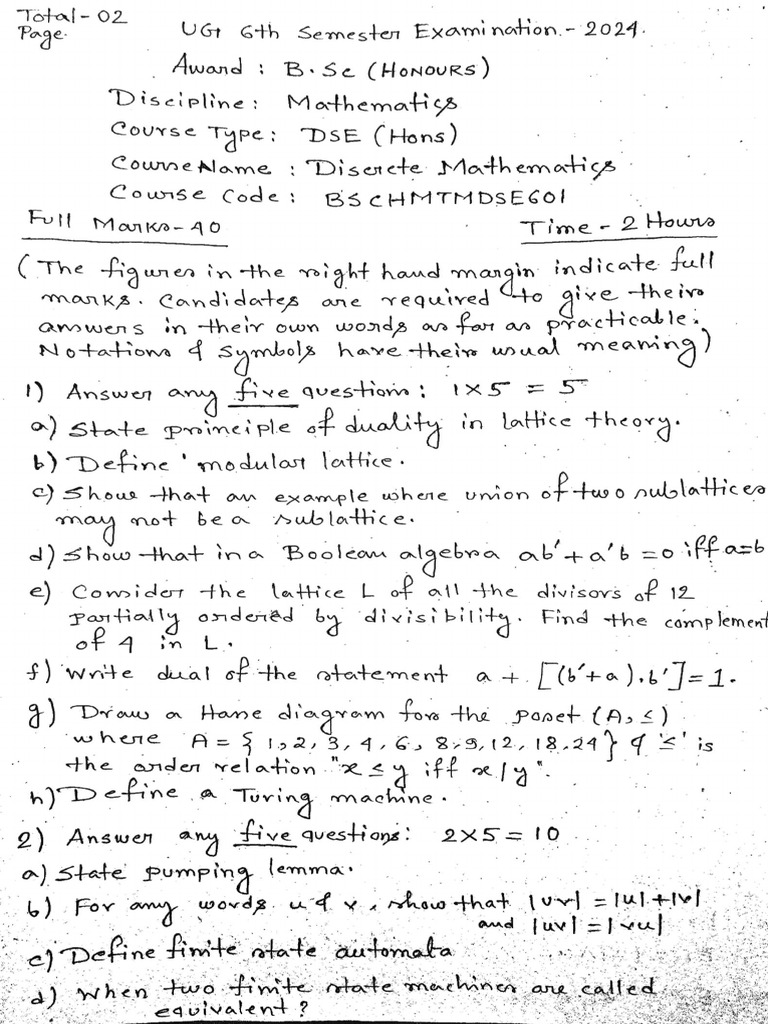 Total-02
Page.
UG 6th Semester Examination - 2024.
Award : B.Sc (HONOURS)
Discipline : Mathematics
Course Type : DSE (Hons)
Course Name : Discrete Mathematics
Course Code : BSCHMTMDSE601
Full Marks-40
Time - 2 Hours
(The figures in the right hand margin indicate full
marks. Candidates are required to give their
answers in their own words as far as practicable.
Notations & symbols have their usual meaning)
1) Answer any five questions : 1×5 = 5
a) State principle of duality in lattice theory.
b) Define modular lattice.
c) Show that an example where union of two sublattices
may not be a sublattice.
d) Show that in a Boolean algebra ab'+a'b =0 iff a=b
e) Consider the lattice L of all the divisors of 12
partially ordered by divisibility. Find the complement
of 4 in L.
f) Write dual of the statement a + [(b'+a).b']=1.
g) Draw a Hasse diagram for the poset (A,≤)
where A = {1,2,3,4,6,8,9,12,18,24} & '≤' is
the order relation "x≤y iff x/y".
h) Define a Turing machine.
2) Answer any five questions: 2×5=10
a) State pumping lemma.
b) For any words u & v, show that |uv| = |u|+|v|
and |uv|=|vu|
c) Define finite state automata
d) When two finite state machines are called
equivalent ?